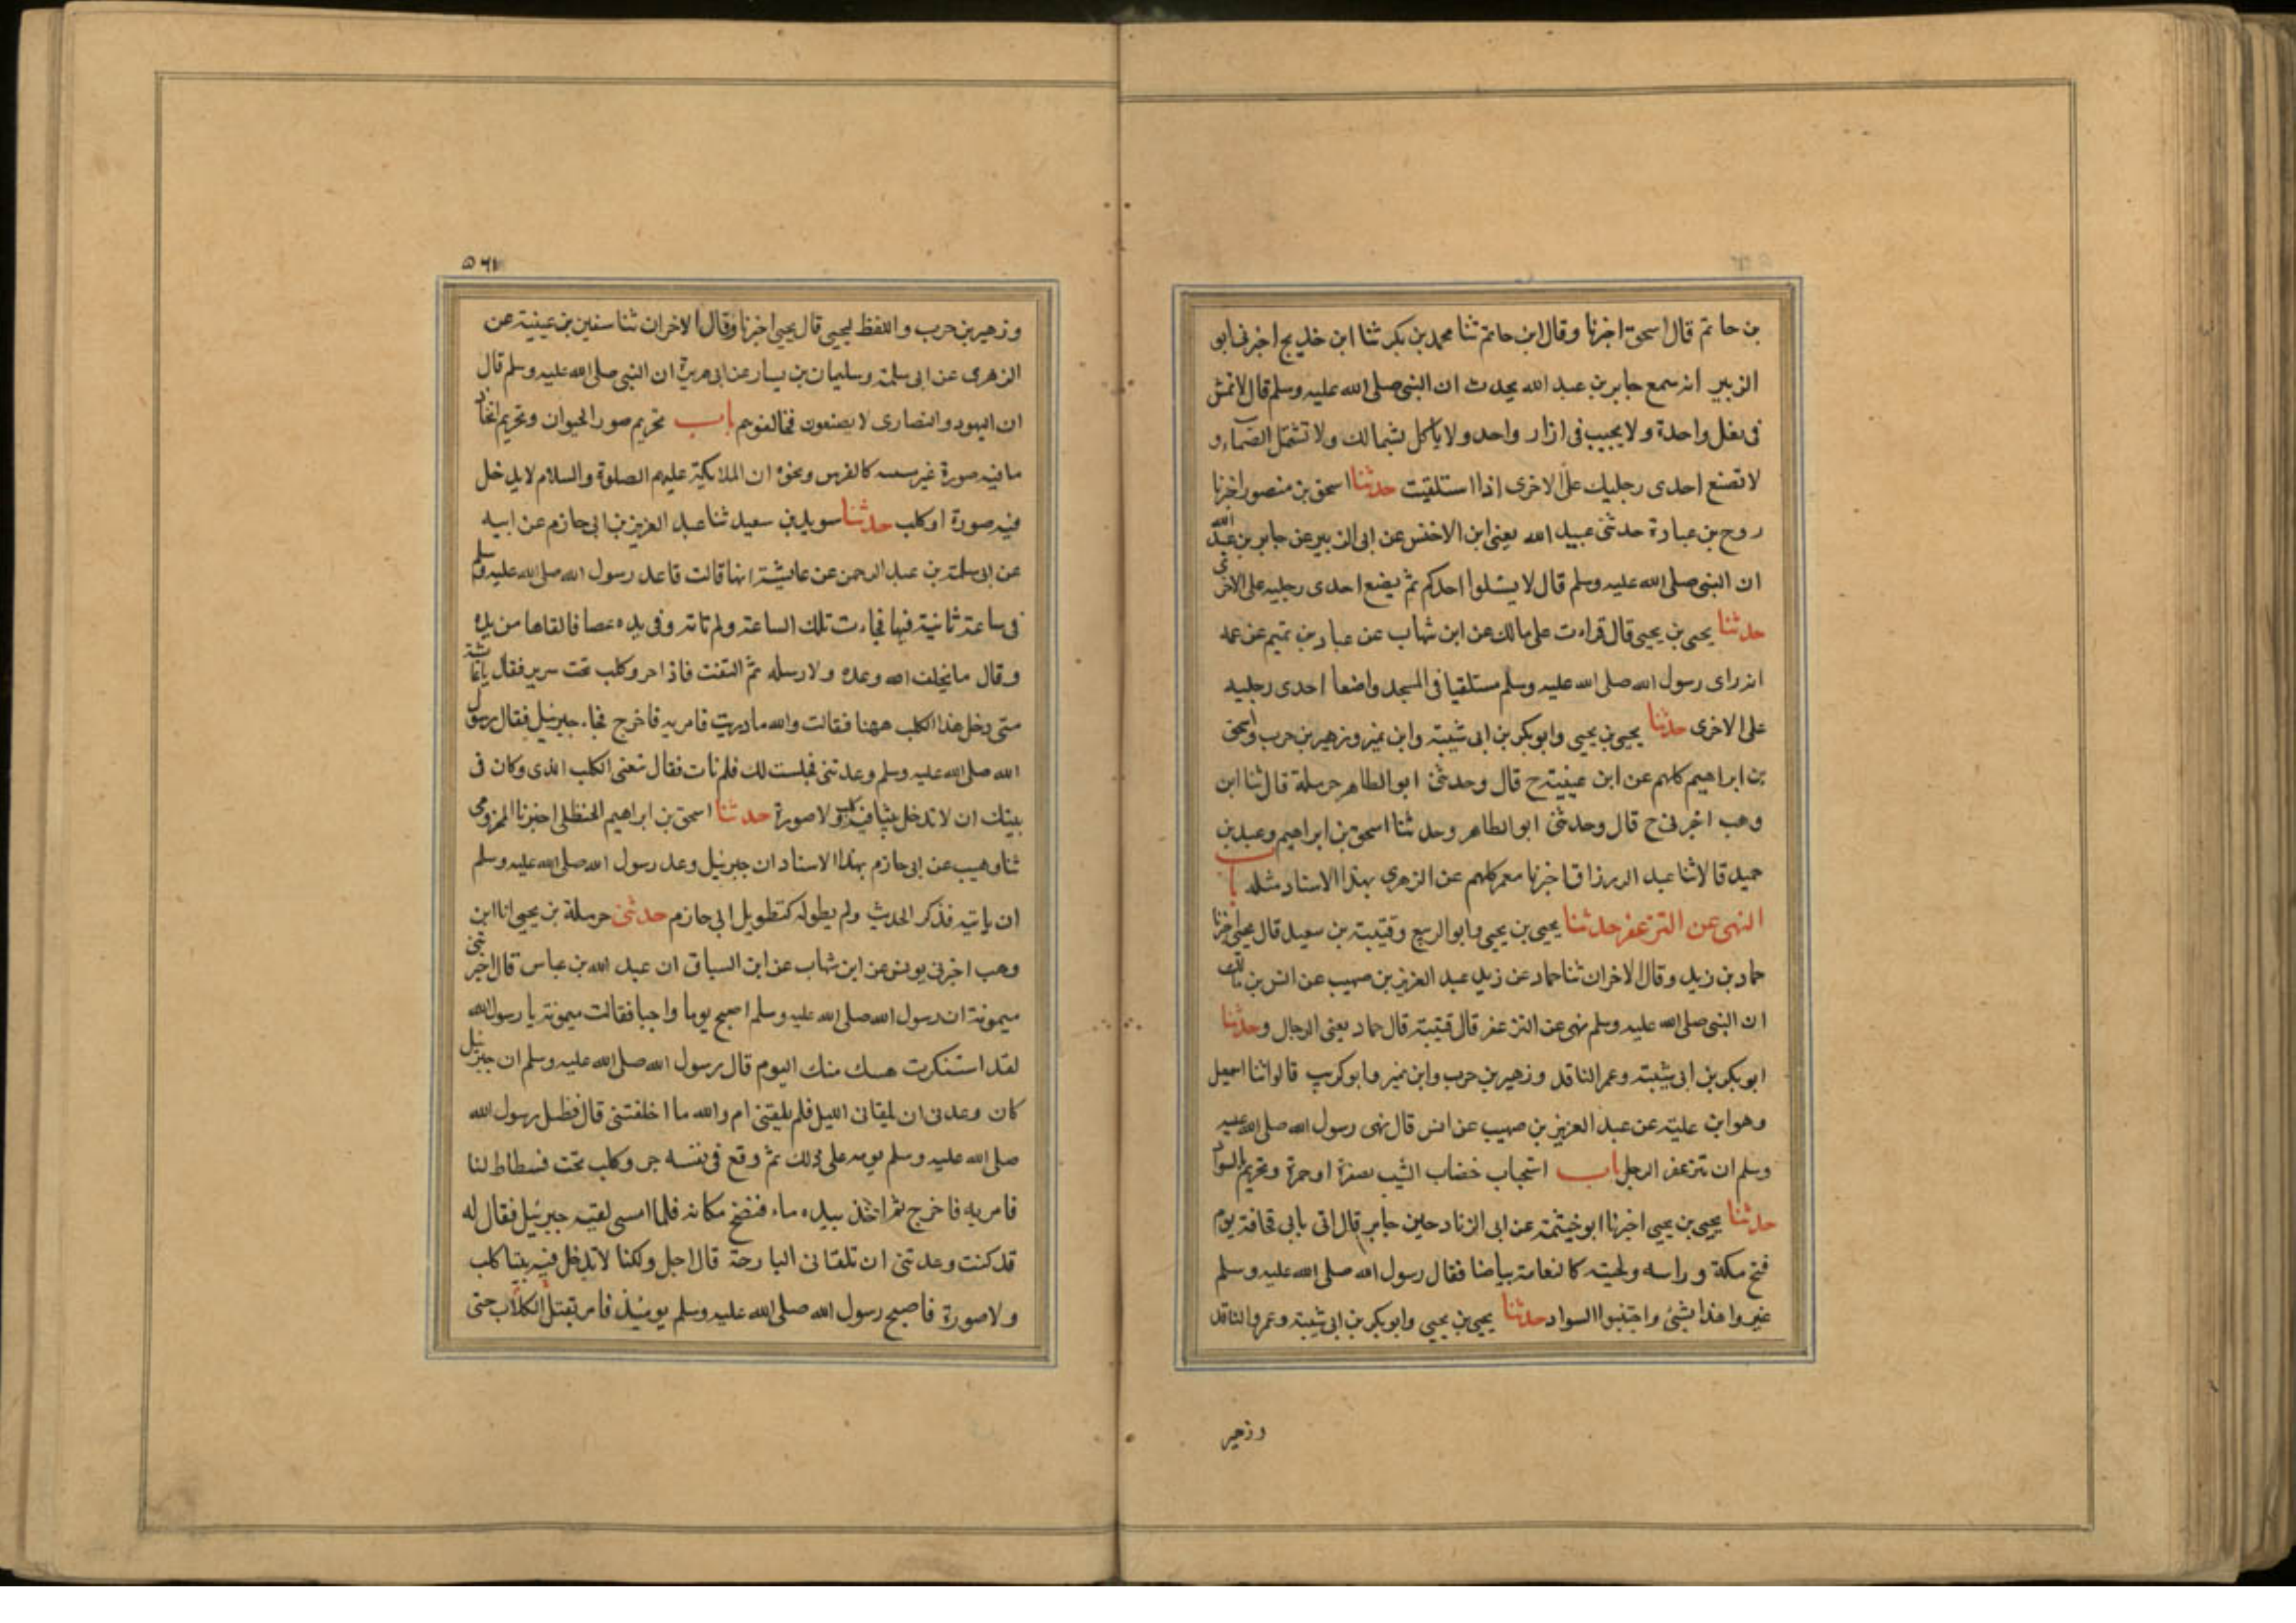 بن حاتم قال اسحق اخبرنا وقال ابن حاتم ثنا محمد بن بكر ثنا ابن خديج اخبرنى ابو
الزبير انه سمع جابر بن عبد الله يحدث ان النبى صلى الله عليه وسلم قال لا تمش
فى نعل واحدة ولا يحبيب فى ازار واحد ولا ياكل بشمالك ولا تشتمل الصماء و
لا تضع احدى رجليك على الاخرى اذا استلقيت حدثنا اسحق بن منصور اخبرنا
روح بن عبادة حدثنى عبيد الله يعنى ابن الاخنس عن ابى الزبير عن جابر بن عبد الله
ان النبى صلى الله عليه وسلم قال لا يستلوا احدكم ثم يضع احدى رجليه على الاخرى
حدثنا يحيى بن يحيى قال قراءت على مالك عن ابن شهاب عن عباد بن تميم عن عمه
انه راى رسول الله صلى الله عليه وسلم مستلقيا فى المسجد واضعا احدى رجليه
على الاخرى حدثنا يحيى بن يحيى وابو بكر بن ابى شيبة وابن نمير وزهير بن حرب واسحق
بن ابراهيم كلهم عن ابن عيينة ح قال وحدثنى ابو الطاهر حرملة قال ثنا ابن
وهب اخبرنى ح قال وحدثنى ابو الطاهر وحدثنا اسحق بن ابراهيم وعبد بن
حميد قالا ثنا عبد الررزاق اخبرنا معمر كلهم عن الزهرى بهذا الاسناد مثله باب
النهى عن التزعفر حدثنا يحيى بن يحيى وابو الربيع وقتيبة بن سعيد قال يحيى اخبرنا
حماد بن زيد وقال الاخران ثنا حماد عن زيد عبد العزيز بن صهيب عن انس بن مالك
ان النبى صلى الله عليه وسلم نهى عن التزعفر قال قتيبة قال حماد يعنى الرجال وحدثنا
ابو بكر بن ابى شيبة وعمر الناقد وزهير بن حرب وابن نمير وابو كريب قالوا ثنا اسمعيل
وهو ابن علية عن عبد العزيز بن صهيب عن انس قال نهى رسول الله صلى الله عليه
وسلم ان تتزعفر الرجل باب استحباب خضاب الشيب بصفرة او حمرة وتحريم السواد
حدثنا يحيى بن يحيى اخبرنا ابو خيثمة عن ابى الزناد حين جابر قال اتى بابى قحافة يوم
فتح مكة وراسه ولحيته كالنعامة بياضا فقال رسول الله صلى الله عليه وسلم
غيروا هذا بشئ واجتنبوا السواد حدثنا يحيى بن يحيى وابو بكر بن ابى شيبة وعمر والناقد
وزهير
٥٦٧
وزهير بن حرب واللفظ ليحيى قال يحيى اخبرنا وقال الاخران ثنا سفين بن عيينة عن
الزهرى عن ابى سلمة وسليمان بن يسار عن ابى هريرة ان النبى صلى الله عليه وسلم قال
ان اليهود والنصارى لا يصنعون فخالفوهم باب تحريم صور الحيوان وتحريم اتخاذ
ما فيه صورة غير كالفرس ونحوه ان الملائكة عليهم الصلوة والسلام لا يدخل
فيه صورة او كلب حدثنا سويد بن سعيد ثنا عبد العزيز بن ابى حازم عن ابيه
عن ابى سلمة بن عبد الرحمن عن عايشة انها قالت قاعد رسول الله صلى الله عليه وسلم
فى ساعة ثانية فيها فجاءت تلك الساعة ولم تاته وفى يده عصا فالقاها من يده
وقال ما يخلف الله وعده ولا رسله ثم التفت فاذا جر وكلب تحت سرير فقال يا عائشة
متى دخل هذا الكلب ههنا فقالت والله ما دريت فامر به فاخرج فجاء جبرئيل فقال رسول
الله صلى الله عليه وسلم وعدتنى فجلست لك فلم تات فقال تعنى الكلب الذى وكان فى
بيتك ان لا تدخل بيتا فيه كلب ولا صورة حدثنا اسحق بن ابراهيم الحنظلى اخبرنا المخزومى
ثنا وهيب عن ابى حازم بهذا الاسناد ان جبرئيل وعد رسول الله صلى الله عليه وسلم
ان ياتيه فذكر الحديث ولم يطوله كتطويل ابى حازم حدثنى حرملة بن يحيى انا ابن
وهب اخبرنى يونس عن ابن شهاب عن ابن السباق ان عبد الله بن عباس قال اخبرتنى
ميمونة ان رسول الله صلى الله عليه وسلم اصبح يوما واجبا فقالت ميمونة يا رسول الله
لقد استنكرت هسك منك اليوم قال رسول الله صلى الله عليه وسلم ان جبرئيل
كان وعدنى ان يلقانى الليل فلم يلقنى ام والله ما اخلفتنى قال فظل رسول الله
صلى الله عليه وسلم يومه على ذلك ثم وقع فى نفسه جر وكلب تحت فسطاط لنا
فامر به فاخرج ثم اخذ بيده ماء فنضخ مكانه فلما امسى لقيه جبرئيل فقال له
قد كنت وعدتنى ان تلقانى البارحة قال اجل ولكنا لا تدخل فيه بيتا كلب
ولا صورة فاصبح رسول الله صلى الله عليه وسلم يومئذ فامر بقتل الكلاب حتى